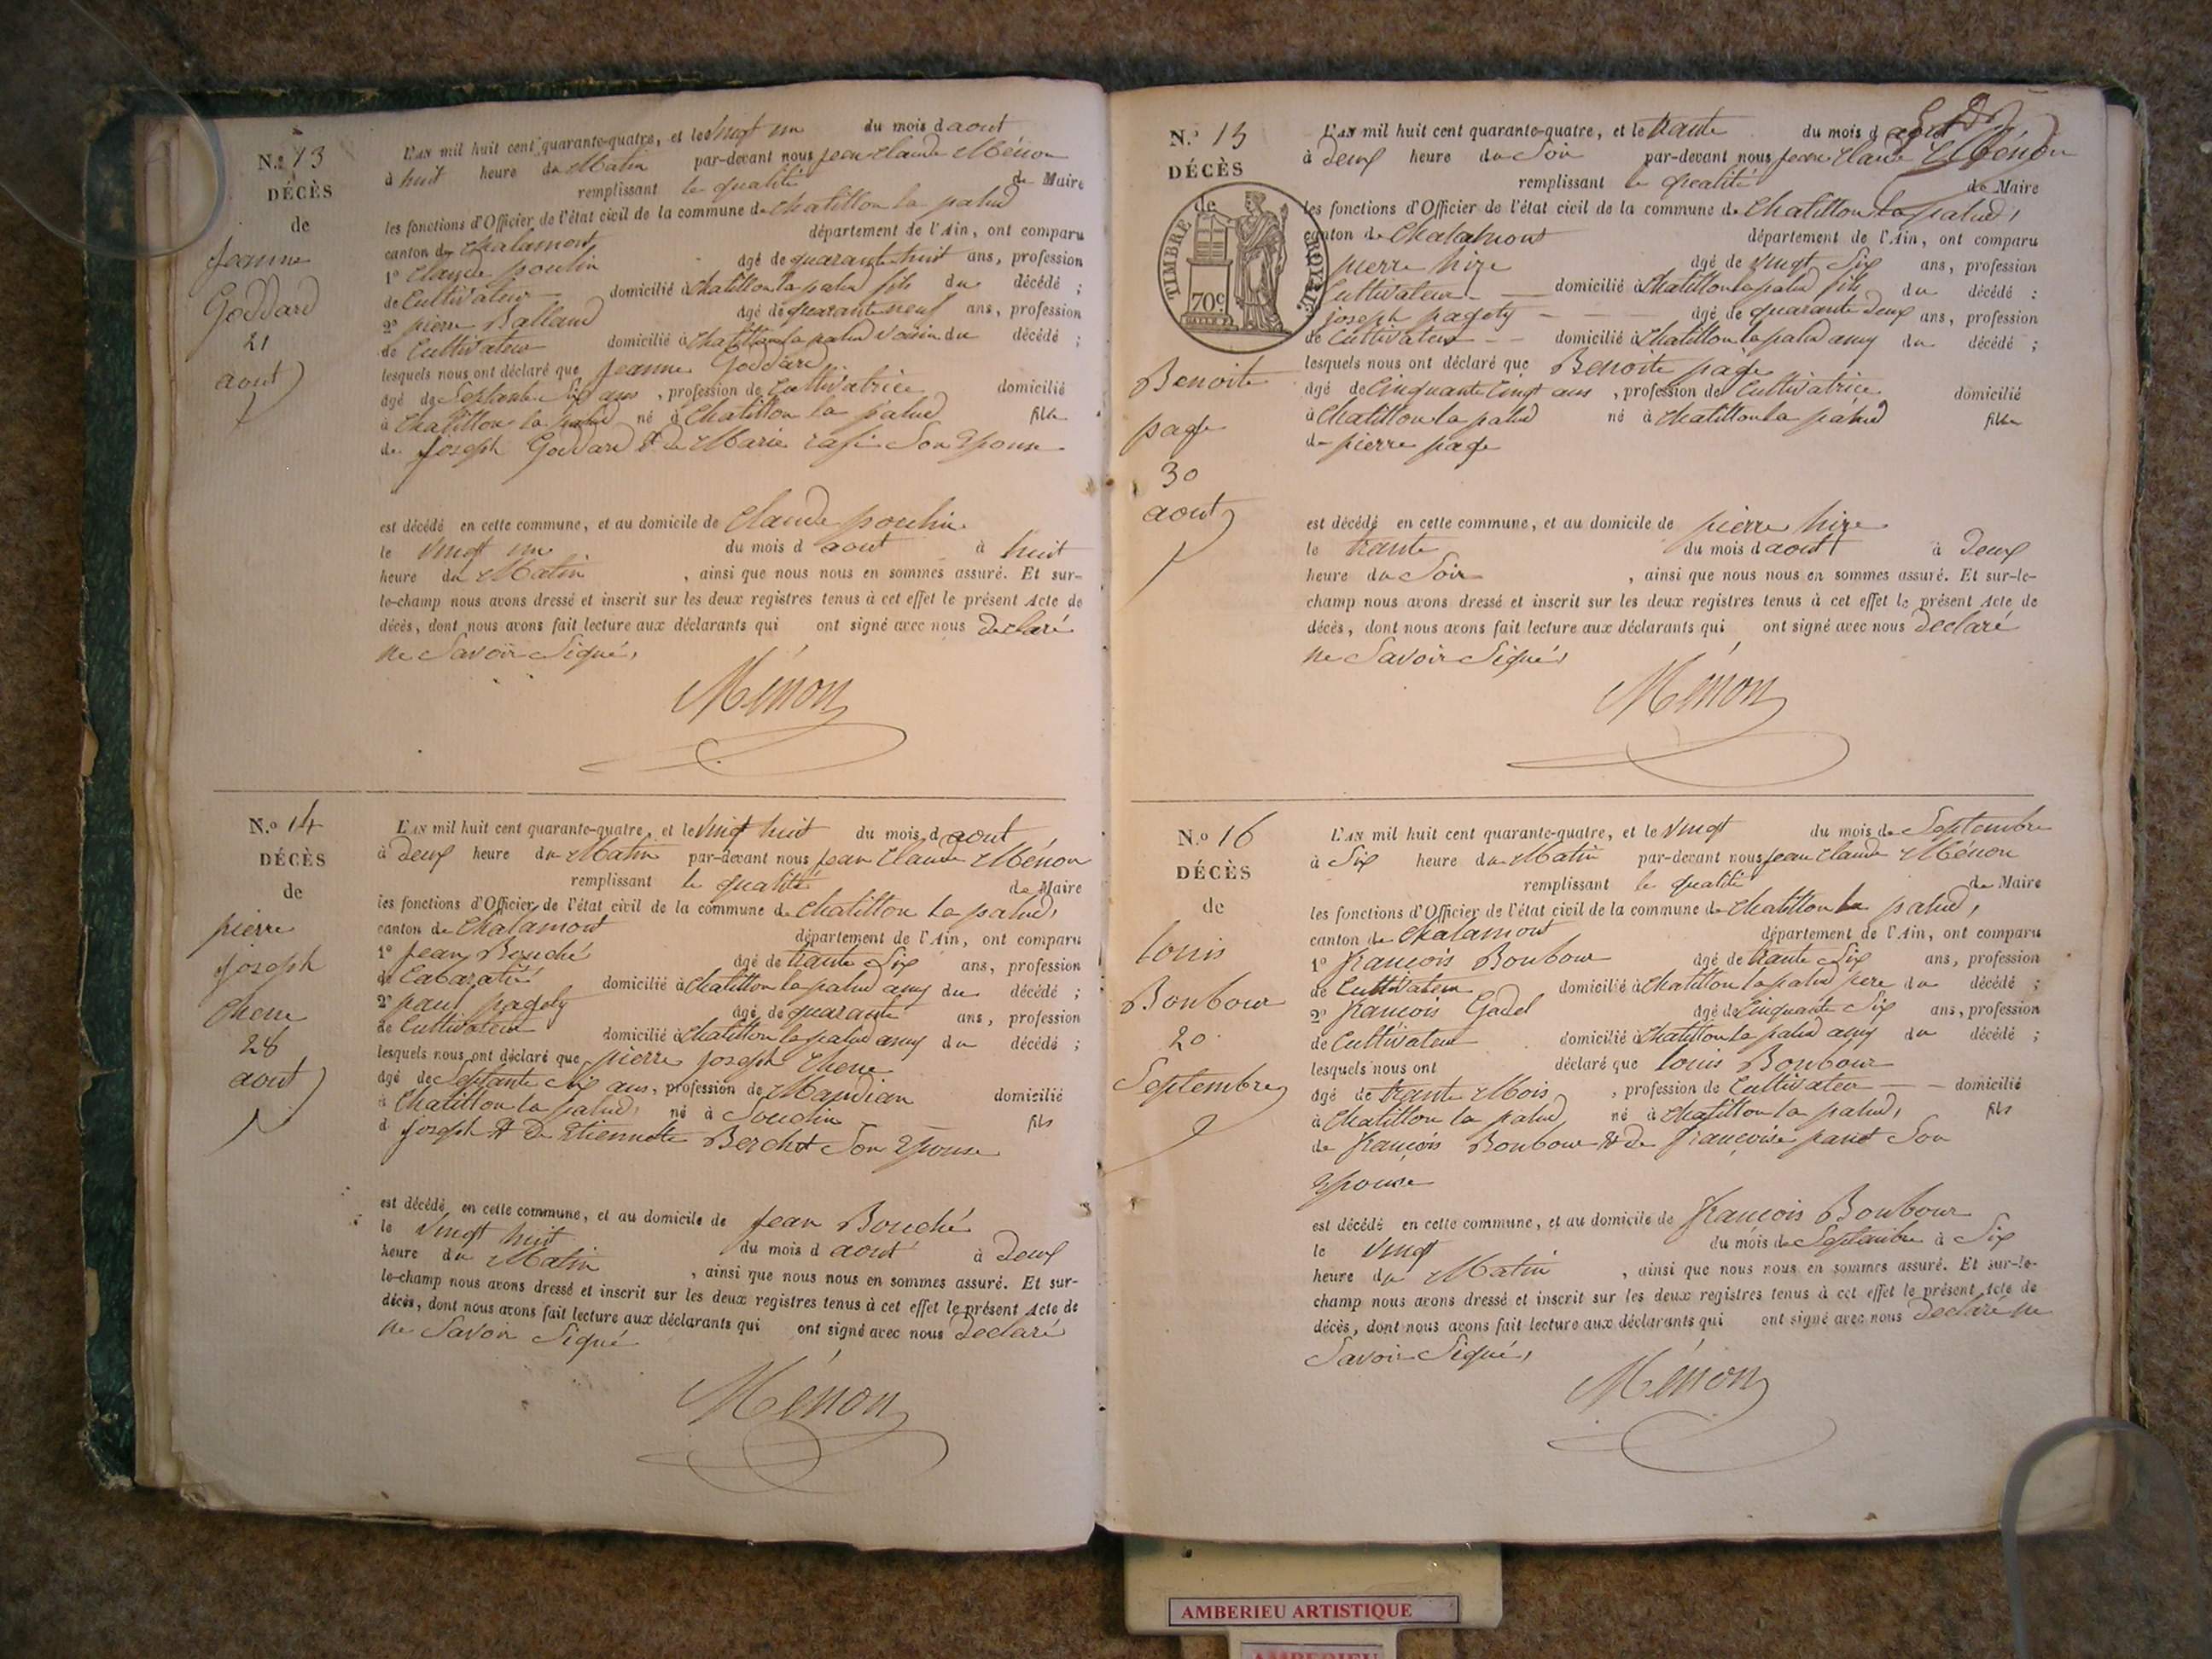 N.o 13
DÉCÈS
de
Jeanne
Goddard
21
aout
L'AN mil huit cent quarante-quatre, et le Vingt un du mois d aout
à huit heure du Matin par-devant nous jean Claude Ménon
remplissant le qualité de Maire
les fonctions d'Officier de l'état civil de la commune de Chatillon la palud
canton de Chalamont département de l'Ain, ont comparu
1º Claude poulin âgé de quarante huit ans, profession
de Cultivateur domicilié à Chatillon la palud fils du décédé ;
2º pierre Balland âgé de quarante neuf ans, profession
de Cultivateur domicilié à Chatillon la palud voisin du décédé ;
lesquels nous ont déclaré que Jeanne Goddard
âgé de Septante Six ans, profession de Cultivatrice domicilié
à Chatillon la palud né à Chatillon la palud fille
de joseph Goddard & de Marie Son Epouse
est décédé en cette commune, et au domicile de Claude poulin
le Vingt un du mois d aout à huit
heure du Matin , ainsi que nous nous en sommes assuré. Et sur-
le-champ nous avons dressé et inscrit sur les deux registres tenus à cet effet le présent Acte de
décès, dont nous avons fait lecture aux déclarants qui ont signé avec nous Declaré
ne Savoir Signé,
Ménon
N.o 14
DÉCÈS
de
pierre
joseph
chene
28
aout
L'AN mil huit cent quarante-quatre, et le Vingt huit du mois d aout
à Deux heure du Matin par-devant nous jean Claude Ménon
remplissant le qualité de Maire
les fonctions d'Officier de l'état civil de la commune de Chatillon la palud,
canton de Chalamont département de l'Ain, ont comparu
1º Jean Bouché âgé de trante Six ans, profession
de Cabaratié domicilié à Chatillon la palud amy du décédé ;
2º paul pagoty âgé de quarante ans, profession
de Cultivateur domicilié à Chatillon la palud amy du décédé ;
lesquels nous ont déclaré que pierre joseph Chene
âgé de Septante Six ans, profession de Mandian domicilié
à Chatillon la palud, né à Souclin fils
d joseph & De Etiennette Berchet Son Epouse
est décédé en cette commune, et au domicile de Jean Bouché
le Vingt huit du mois d aout à Deux
heure du Matin , ainsi que nous nous en sommes assuré. Et sur-
le-champ nous avons dressé et inscrit sur les deux registres tenus à cet effet le présent Acte de
décès, dont nous avons fait lecture aux déclarants qui ont signé avec nous Declaré
ne Savoir Signé
Ménon
N.o 15
DÉCÈS
de
TIMBRE ROYAL
70c
Benoite
page
30
aout
L'AN mil huit cent quarante-quatre, et le trante du mois d aout
à Deux heure du Soir par-devant nous jean Claude Ménon
remplissant le qualité de Maire
les fonctions d'Officier de l'état civil de la commune de Chatillon la palud,
canton de Chalamont département de l'Ain, ont comparu
pierre hire âgé de Vingt Six ans, profession
Cultivateur domicilié à Chatillon la palud fils du décédé :
joseph pagoty âgé de quarante Deux ans, profession
de Cultivateur domicilié à Chatillon la palud amy du décédé ;
lesquels nous ont déclaré que Benoite page
âgé de Cinquante Cinqt ans , profession de Cultivatrice domicilié
à Chatillon la palud né à Chatillon la palud fille
de pierre page
est décédé en cette commune, et au domicile de pierre hire
le trante du mois d aout à Deux
heure du Soir , ainsi que nous nous en sommes assuré. Et sur-le-
champ nous avons dressé et inscrit sur les deux registres tenus à cet effet le présent Acte de
décès, dont nous avons fait lecture aux déclarants qui ont signé avec nous Declaré
ne Savoir Signé,
Ménon
N.o 16
DÉCÈS
de
louis
Bonbour
20
Septembre
L'AN mil huit cent quarante-quatre, et le Vingt du mois de Septembre
à Six heure du Matin par-devant nous jean Claude Ménon
remplissant le qualité de Maire
les fonctions d'Officier de l'état civil de la commune de Chatillon la palud,
canton de Chalamont département de l'Ain, ont comparu
1º françois Bonbour âgé de trante Six ans, profession
de Cultivateur domicilié à Chatillon la palud pere du décédé ;
2º françois Gadel âgé de Cinquante Six ans, profession
de Cultivateur domicilié à Chatillon la palud amy du décédé ;
lesquels nous ont déclaré que louis Bonbour
âgé de trante Mois , profession de Cultivateur domicilié
à Chatillon la palud né à Chatillon la palud, fils
de françois Bonbour & De françoise panet Son
Epouse
est décédé en cette commune, et au domicile de françois Bonbour
le Vingt du mois de Septembre à Six
heure du Matin , ainsi que nous nous en sommes assuré. Et sur-le-
champ nous avons dressé et inscrit sur les deux registres tenus à cet effet le présent Acte de
décès, dont nous avons fait lecture aux déclarants qui ont signé avec nous Declaré ne
Savoir Signé,
Ménon
AMBERIEU ARTISTIQUE
AMBERIEU